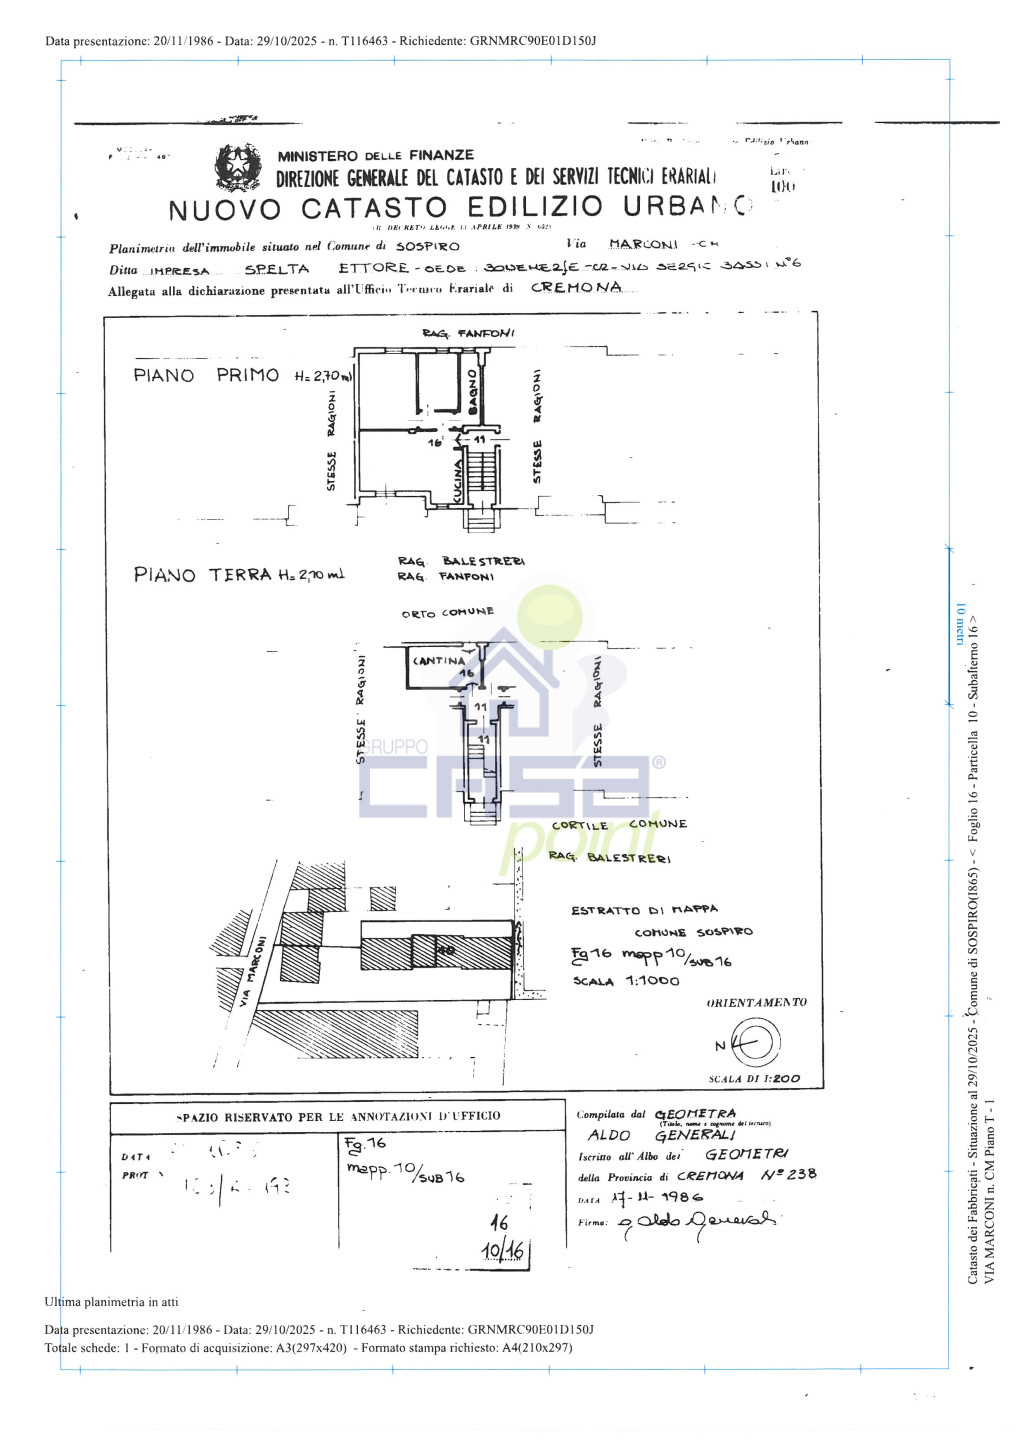 Data presentazione: 20/11/1986 - Data: 29/10/2025 - n. T116463 - Richiedente: GRNMRC90E01D150J
Edilizio Urbano
MINISTERO DELLE FINANZE
DIREZIONE GENERALE DEL CATASTO E DEI SERVIZI TECNICI ERARIALI
100
NUOVO CATASTO EDILIZIO URBANO
Planimetria dell'immobile situato nel Comune di SOSPIRO Via MARCONI - CM
Ditta IMPRESA SPELTA ETTORE - SERGIO BASSI N°6
Allegata alla dichiarazione presentata all'Ufficio Tecnico Erariale di CREMONA
RAG. FANFONI
PIANO PRIMO H=2,70 ml
STESSE RAGIONI
BAGNO
STESSE RAGIONI
16
11
CUCINA
RAG. BALESTRERI
RAG. FANFONI
PIANO TERRA H=2,70 ml
ORTO COMUNE
STESSE RAGIONI
CANTINA
16
STESSE RAGIONI
11
11
GRUPPO
CASA®
point
CORTILE COMUNE
RAG. BALESTRERI
VIA MARCONI
10
ESTRATTO DI MAPPA
COMUNE SOSPIRO
Fg 16 mapp 10/SUB 16
SCALA 1:1000
ORIENTAMENTO
N
SCALA DI 1:200
SPAZIO RISERVATO PER LE ANNOTAZIONI D'UFFICIO
DATA
PROT
Fg. 16
mapp. 10/SUB 16
16
10/16
Compilata dal GEOMETRA
(Titolo, nome e cognome del tecnico)
ALDO GENERALI
Iscritto all'Albo dei GEOMETRI
della Provincia di CREMONA N° 238
DATA 17-11-1986
Firma: g. Aldo Generali
Ultima planimetria in atti
Data presentazione: 20/11/1986 - Data: 29/10/2025 - n. T116463 - Richiedente: GRNMRC90E01D150J
Totale schede: 1 - Formato di acquisizione: A3(297x420) - Formato stampa richiesto: A4(210x297)
10 metri
Catasto dei Fabbricati - Situazione al 29/10/2025 - Comune di SOSPIRO(I865) - < Foglio 16 - Particella 10 - Subalterno 16 >
VIA MARCONI n. CM Piano T - 1